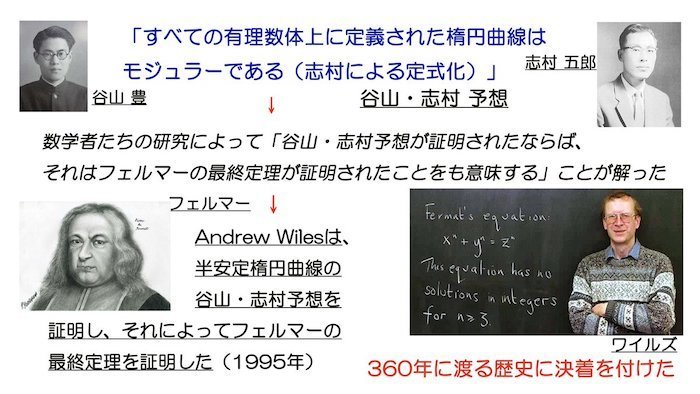 「すべての有理数体上に定義された楕円曲線は
モジュラーである（志村による定式化）」
谷山 豊
志村 五郎
↓
谷山・志村 予想
数学者たちの研究によって「谷山・志村予想が証明されたならば、
それはフェルマーの最終定理が証明されたことをも意味する」ことが解った
フェルマー
↓
Andrew Wilesは、
半安定楕円曲線の
谷山・志村予想を
証明し、それによってフェルマーの
最終定理を証明した（1995年）
Fermat's equation:
xⁿ + yⁿ = zⁿ
This equation has no
solutions in integers
for n ≥ 3.
ワイルズ
360年に渡る歴史に決着を付けた